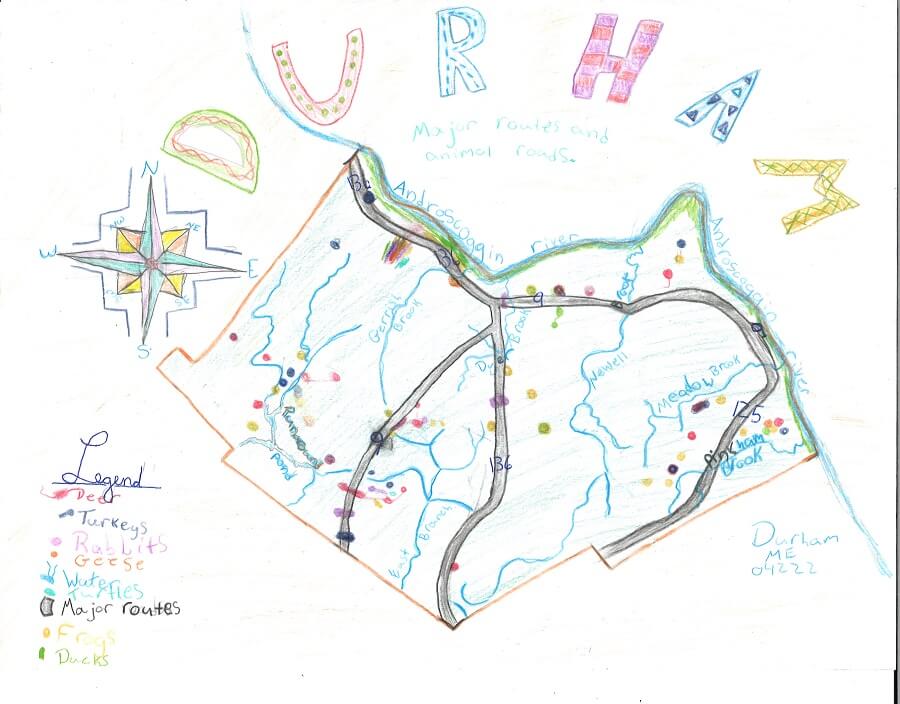 DURHAM
Major routes and
animal roads.
N
NW
NE
W
E
SE
S
136
Androscoggin river
Androscoggin river
9
9
Gerrish
Brook
Dyer
Brook
Newell
Brook
Meadow Brook
125
Pinkham
Brook
Runaround
Pond
136
East Branch
Legend
Deer
Turkeys
Rabbits
Geese
Water
Turtles
Major routes
Frogs
Ducks
Durham
ME
04222